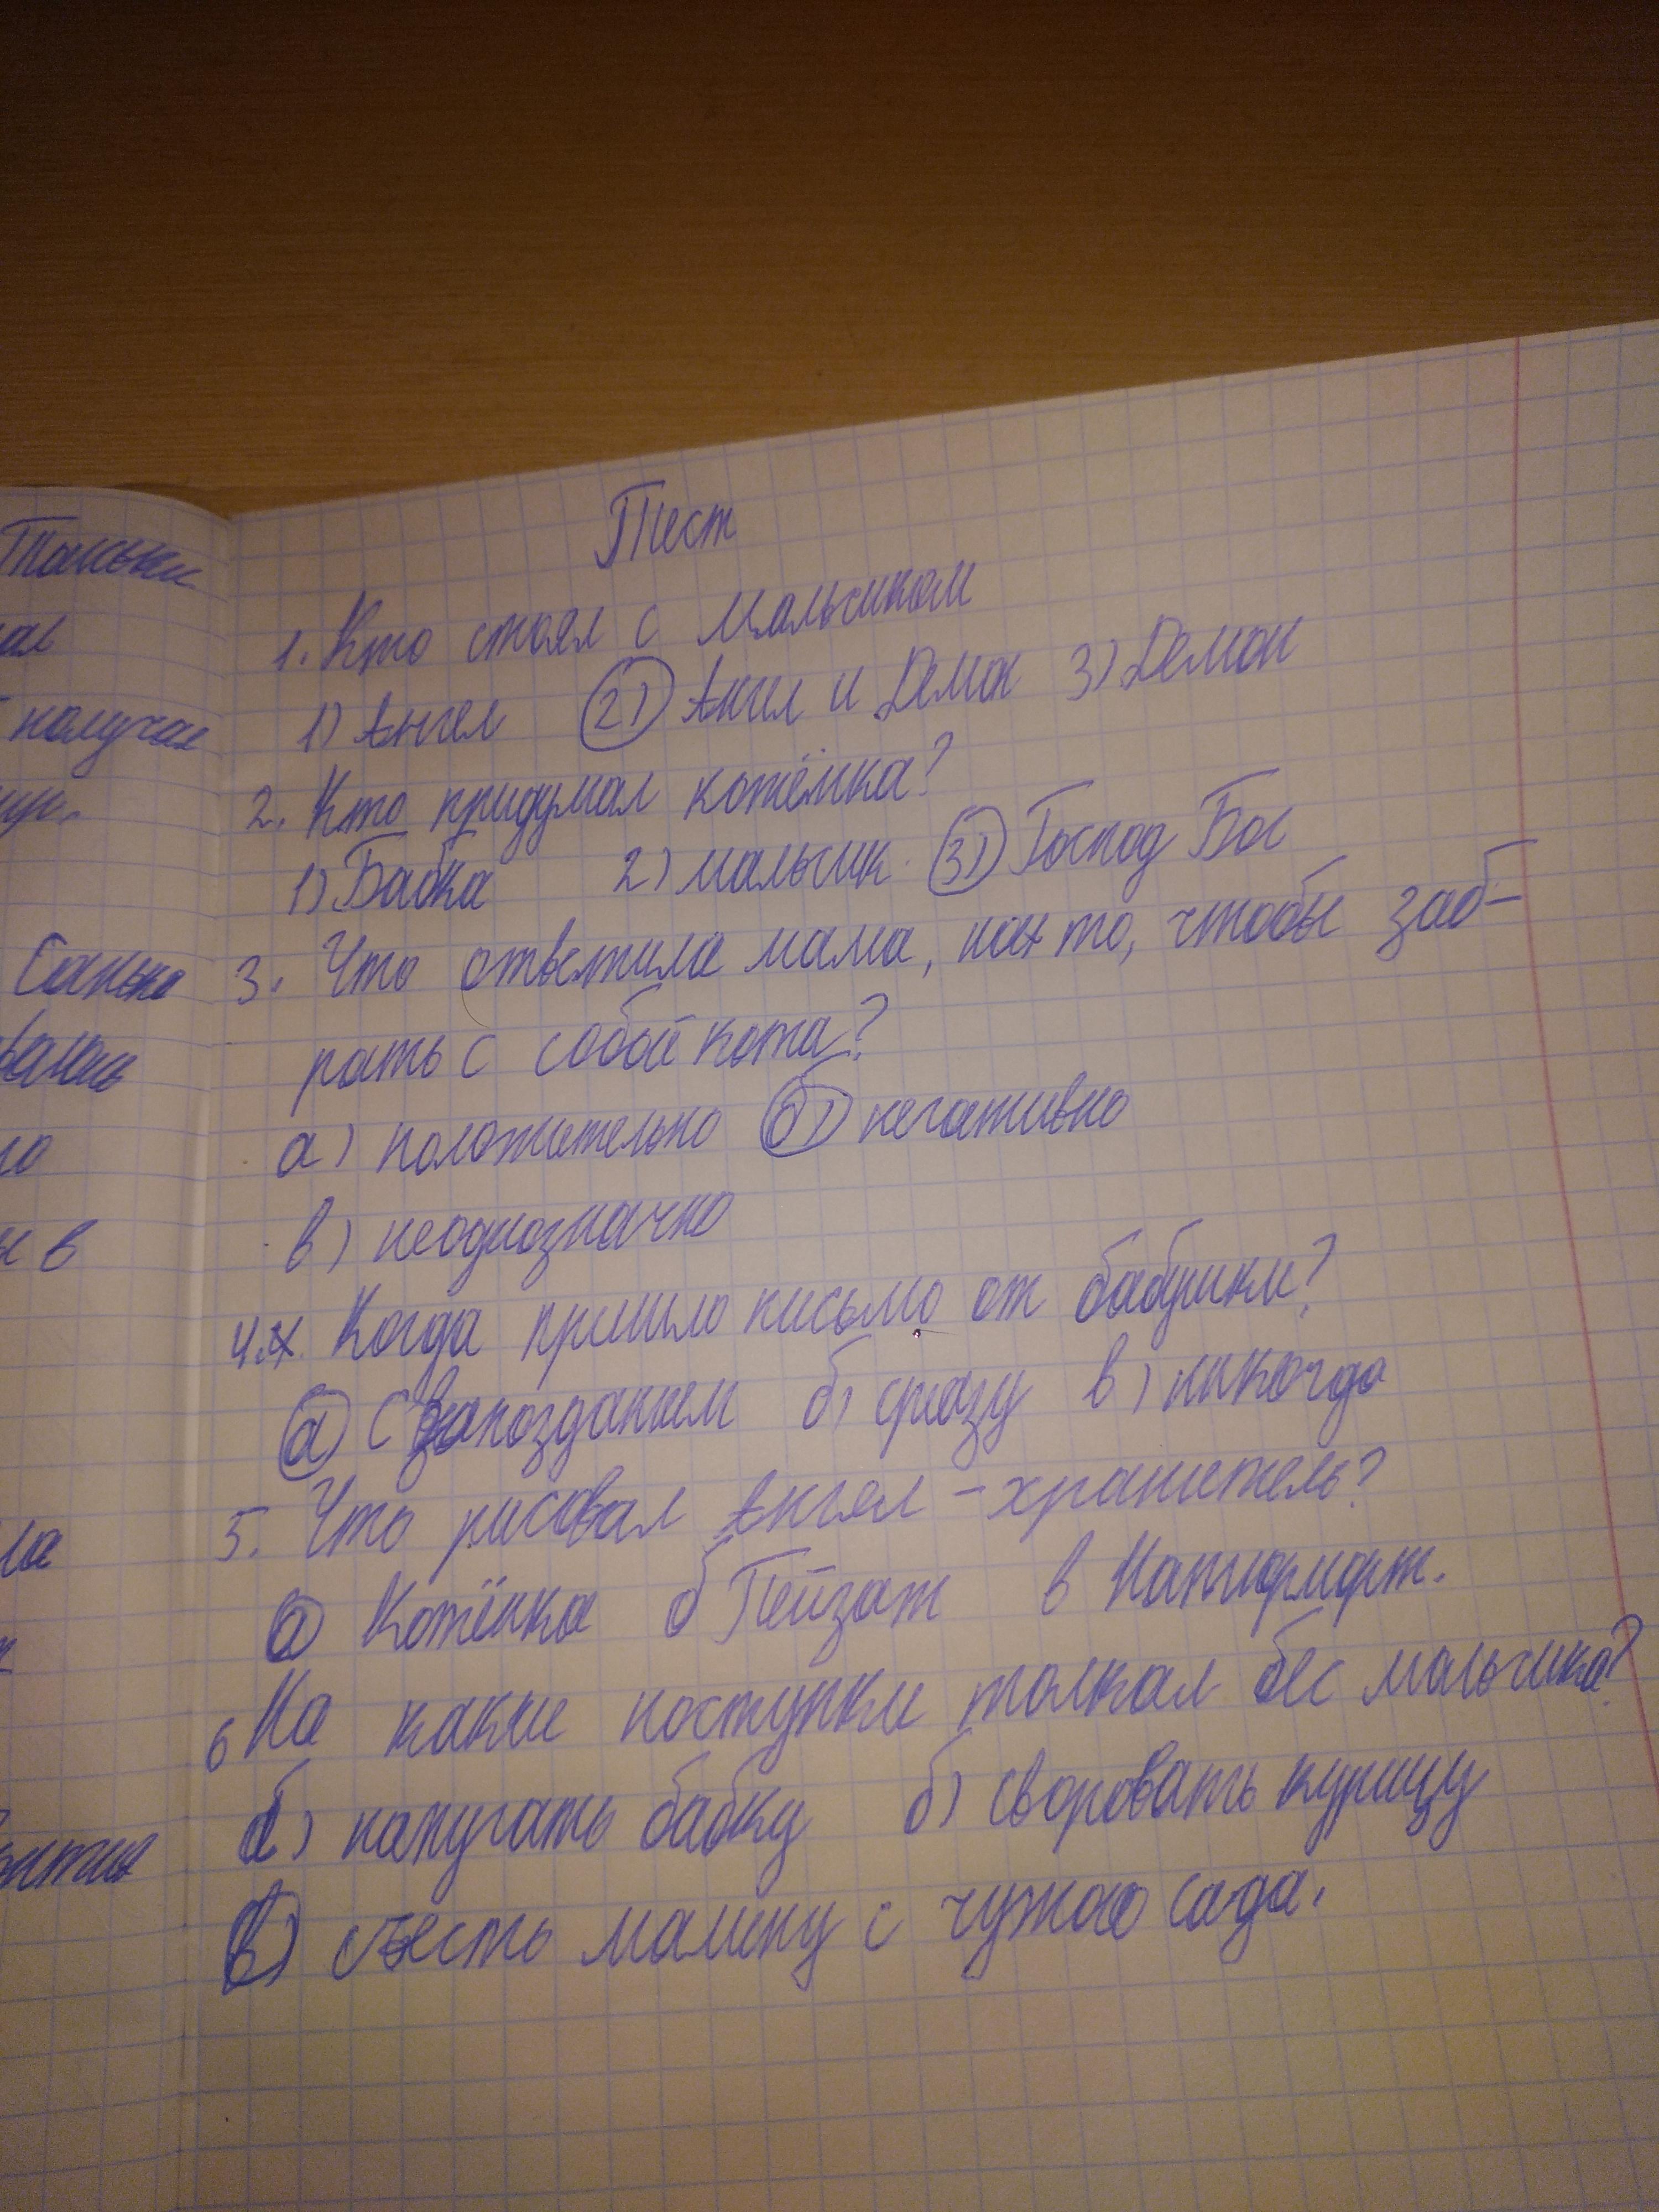 Таньки
ал
получал
Санька
вались
ло
и в
ла
Тест
1. Кто стоял с мальчиком
1) Ангел 2) Ангел и Демон 3) Демон
2. Кто придумал котёнка?
1) Бабка 2) мальчик 3) Господ Бог
3. Что ответила мама, на то, чтобы заб-
рать с собой кота?
а) положительно б) негативно
в) неоднозначно
4. Когда пришло письмо от бабушки?
а) С запозданием б) сразу в) никогда
5. Что рисовал Ангел-хранитель?
а) Котёнка б Пейзаж в Натюрморт.
6 На какие поступки толкал бес мальчика?
а) напугать бабку б) своровать курицу
в) съесть малину с чужого сада.